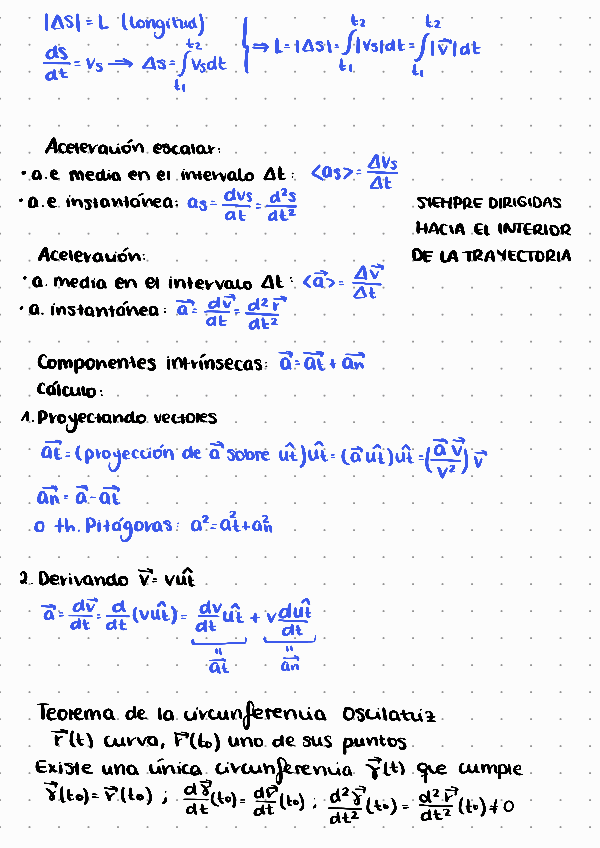 |ΔS| = L (longitud)
ds/dt = Vs → Δs = ∫t1^t2 Vs dt } ⇒ L = |ΔS| = ∫t1^t2 |Vs| dt = ∫t1^t2 |v⃗| dt
Aceleración escalar:
· a.e media en el intervalo Δt: <as> = ΔVs/Δt
· a.e instantánea: as = dvs/dt = d²s/dt²
SIEMPRE DIRIGIDAS
HACIA EL INTERIOR
DE LA TRAYECTORIA
Aceleración:
· a. media en el intervalo Δt: <a⃗> = Δv⃗/Δt
· a. instantánea: a⃗ = dv⃗/dt = d²r⃗/dt²
Componentes intrínsecas: a⃗ = a⃗t + a⃗n
Cálculo:
1. Proyectando vectores
a⃗t = (proyección de a⃗ sobre ût)ût = (a⃗ ût)ût = (a⃗ v⃗/v²) v⃗
a⃗n = a⃗ - a⃗t
o th. Pitágoras: a² = at² + an²
2. Derivando v⃗ = vût
a⃗ = dv⃗/dt = d/dt (vût) = dv/dt ût + v dût/dt
" "
a⃗t a⃗n
Teorema de la circunferencia Oscilatriz
r⃗(t) curva, r⃗(to) uno de sus puntos
Existe una única circunferencia γ⃗(t) que cumple
γ⃗(to) = r⃗(to) ; dγ⃗/dt (to) = dr⃗/dt (to) ; d²γ⃗/dt² (to) = d²r⃗/dt² (to) ≠ 0